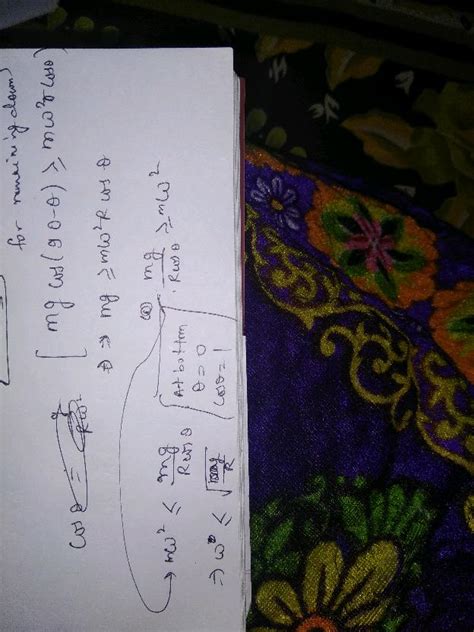 for remaining down)
[mg cos(90-θ) ≥ mω²r cosθ
⇒ mg ≥ mω²R cosθ
mg/R cosθ ≥ mω²
At bottom
θ = 0
cosθ = 1
cosθ = g/Rω²
→ mω² ≤ mg/R cosθ
⇒ ω ≤ √g/R